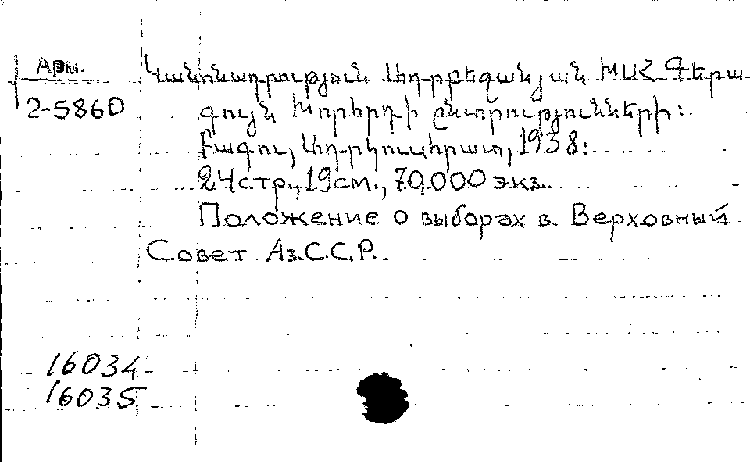 Арм.
2-5860
Կանոնադրություն Ադրբեջանյան ՍՍՀ Գերա-
գույն Խորհրդի ընտրությունների:
Բագու, Ադրկուսհրատ, 1938:
24 стр., 19 см., 70.000 экз.
Положение о выборах в Верховный
Совет Аз.С.С.Р.
16034
16035